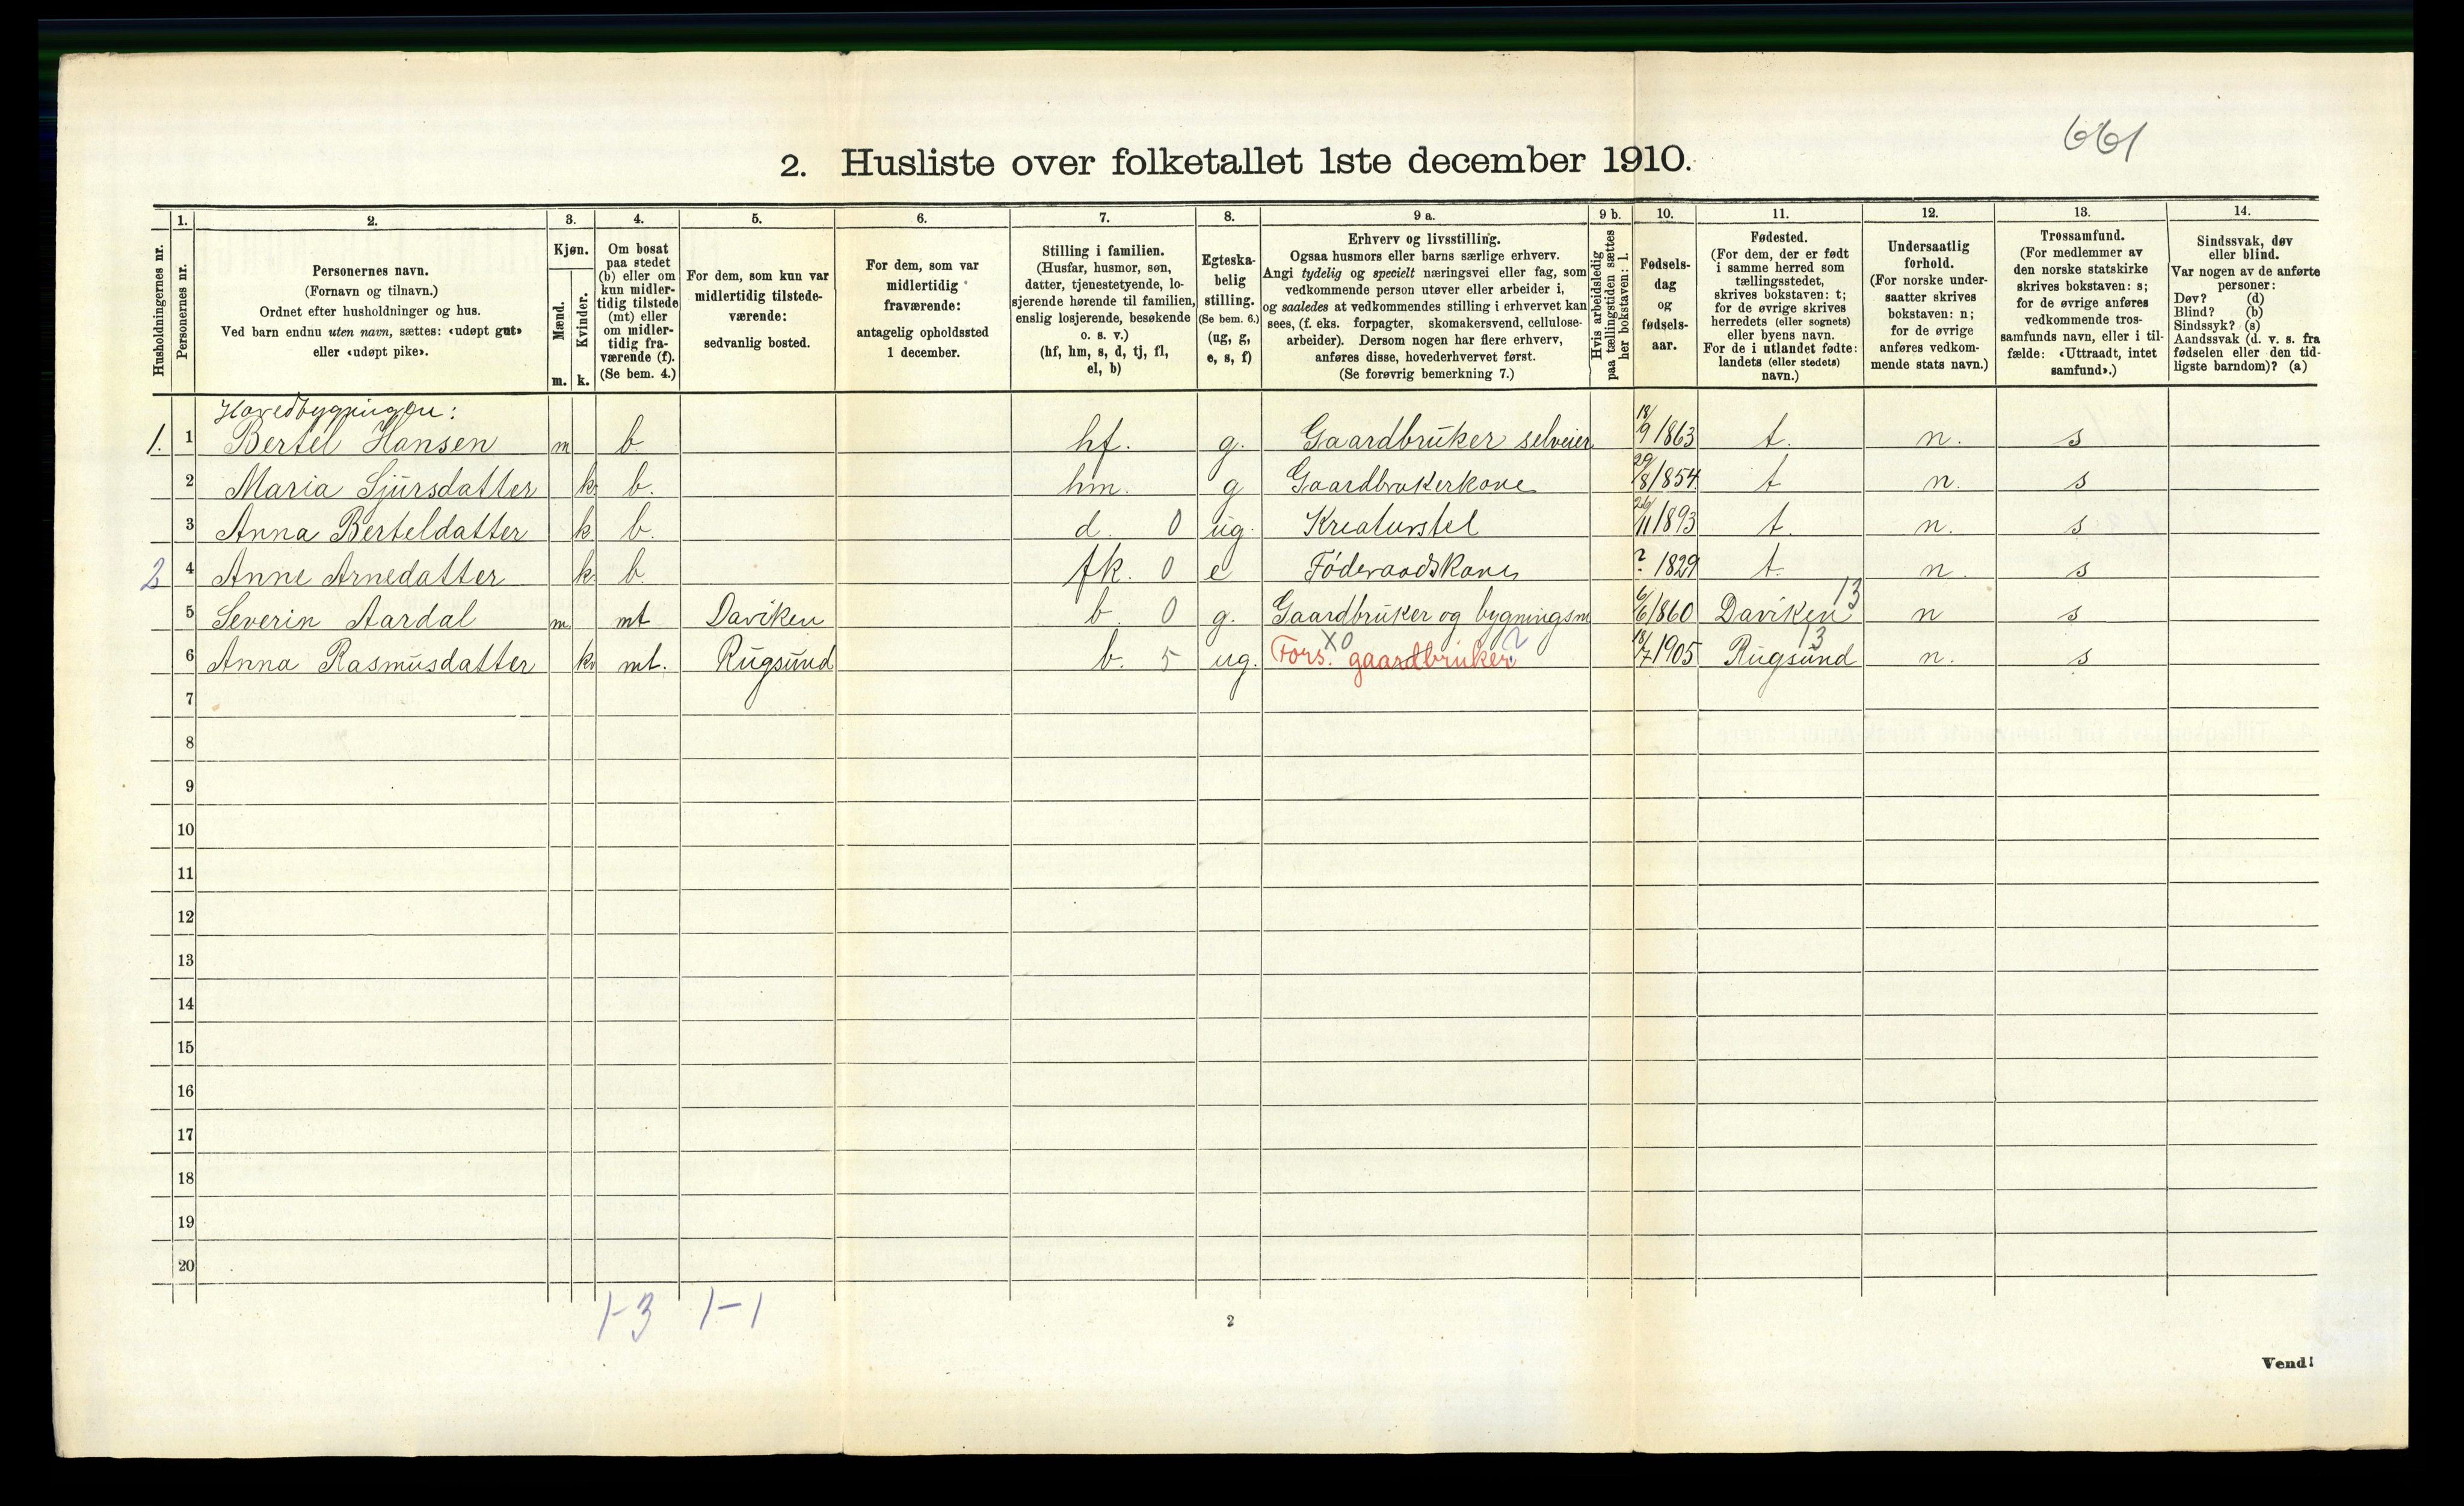 661
2. Husliste over folketallet 1ste december 1910.
Husholdningernes nr.
1. Personernes nr.
2. Personernes navn. (Fornavn og tilnavn.) Ordnet efter husholdninger og hus. Ved barn endnu uten navn, sættes: «udøpt gut» eller «udøpt pike».
3. Kjøn. Mænd. m. Kvinder. k.
4. Om bosat paa stedet (b) eller om kun midlertidig tilstede (mt) eller om midlertidig fraværende (f). (Se bem. 4.)
5. For dem, som kun var midlertidig tilstedeværende: sedvanlig bosted.
6. For dem, som var midlertidig fraværende: antagelig opholdssted 1 december.
7. Stilling i familien. (Husfar, husmor, søn, datter, tjenestetyende, losjerende hørende til familien, enslig losjerende, besøkende o. s. v.) (hf, hm, s, d, tj, fl, el, b)
8. Egteskabelig stilling. (Se bem. 6.) (ug, g, e, s, f)
9 a. Erhverv og livsstilling. Ogsaa husmors eller barns særlige erhverv. Angi tydelig og specielt næringsvei eller fag, som vedkommende person utøver eller arbeider i, og saaledes at vedkommendes stilling i erhvervet kan sees, (f. eks. forpagter, skomakersvend, cellulosearbeider). Dersom nogen har flere erhverv, anføres disse, hovederhvervet først. (Se forøvrig bemerkning 7.)
9 b. Hvis arbeidsledig paa tællingstiden sættes her bokstaven: l.
10. Fødselsdag og fødselsaar.
11. Fødested. (For dem, der er født i samme herred som tællingsstedet, skrives bokstaven: t; for de øvrige skrives herredets (eller sognets) eller byens navn. For de i utlandet fødte: landets (eller stedets) navn.)
12. Undersaatlig forhold. (For norske undersaatter skrives bokstaven: n; for de øvrige anføres vedkommende stats navn.)
13. Trossamfund. (For medlemmer av den norske statskirke skrives bokstaven: s; for de øvrige anføres vedkommende trossamfunds navn, eller i tilfælde: «Uttraadt, intet samfund».)
14. Sindssvak, døv eller blind. Var nogen av de anførte personer: Døv? (d) Blind? (b) Sindssyk? (s) Aandssvak (d. v. s. fra fødselen eller den tidligste barndom)? (a)
Hovedbygningen:
1. 1 Bertel Hansen m b. hf. g. Gaardbruker selveier 18/9 1863 t. n. s
2 Maria Sjursdatter k. b. hm. g Gaardbrukerkone 29/8 1854 t n. s
3 Anna Berteldatter k b. d. 0 ug. Kreaturstel 26/11 1893 t. n. s
2 4 Anne Arnedatter k. b. fk. 0 e Føderaadskone ? 1829 t. n. s
5 Severin Aardal m. mt Daviken b 0 g. Gaardbruker og bygningsm 6/6 1860 Daviken 13 n s
6 Anna Rasmusdatter k. mt. Rugsund b. 5 ug. Fors. gaardbruker X0 2 18/7 1905 Rugsund 13 n. s
7
8
9
10
11
12
13
14
15
16
17
18
19
20
1-3 1-1
2
Vend!